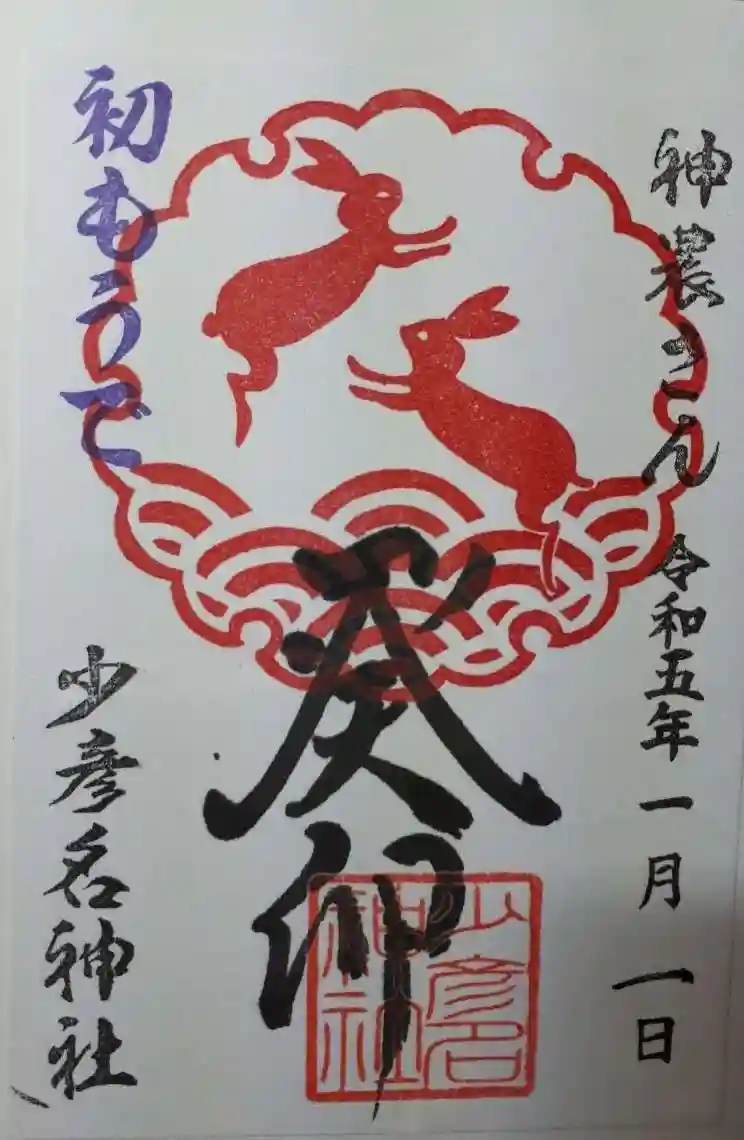 神農さん
令和五年一月一日
癸卯
少彦名神社
初もうで
少彦名神社